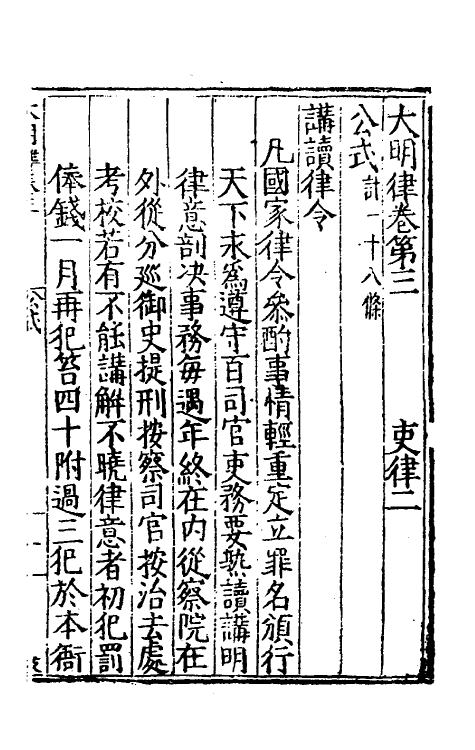 大明律卷第三 吏律二
公式計一十八條
講讀律令
凡國家律令叅酌事情輕重定立罪名頒行
天下永爲遵守百司官吏務要熟讀講明
律意剖决事務每遇年終在内從察院在
外從分巡御史提刑按察司官按治去處
考校若有不能講解不曉律意者初犯罰
俸錢一月再犯笞四十附過三犯於本衙